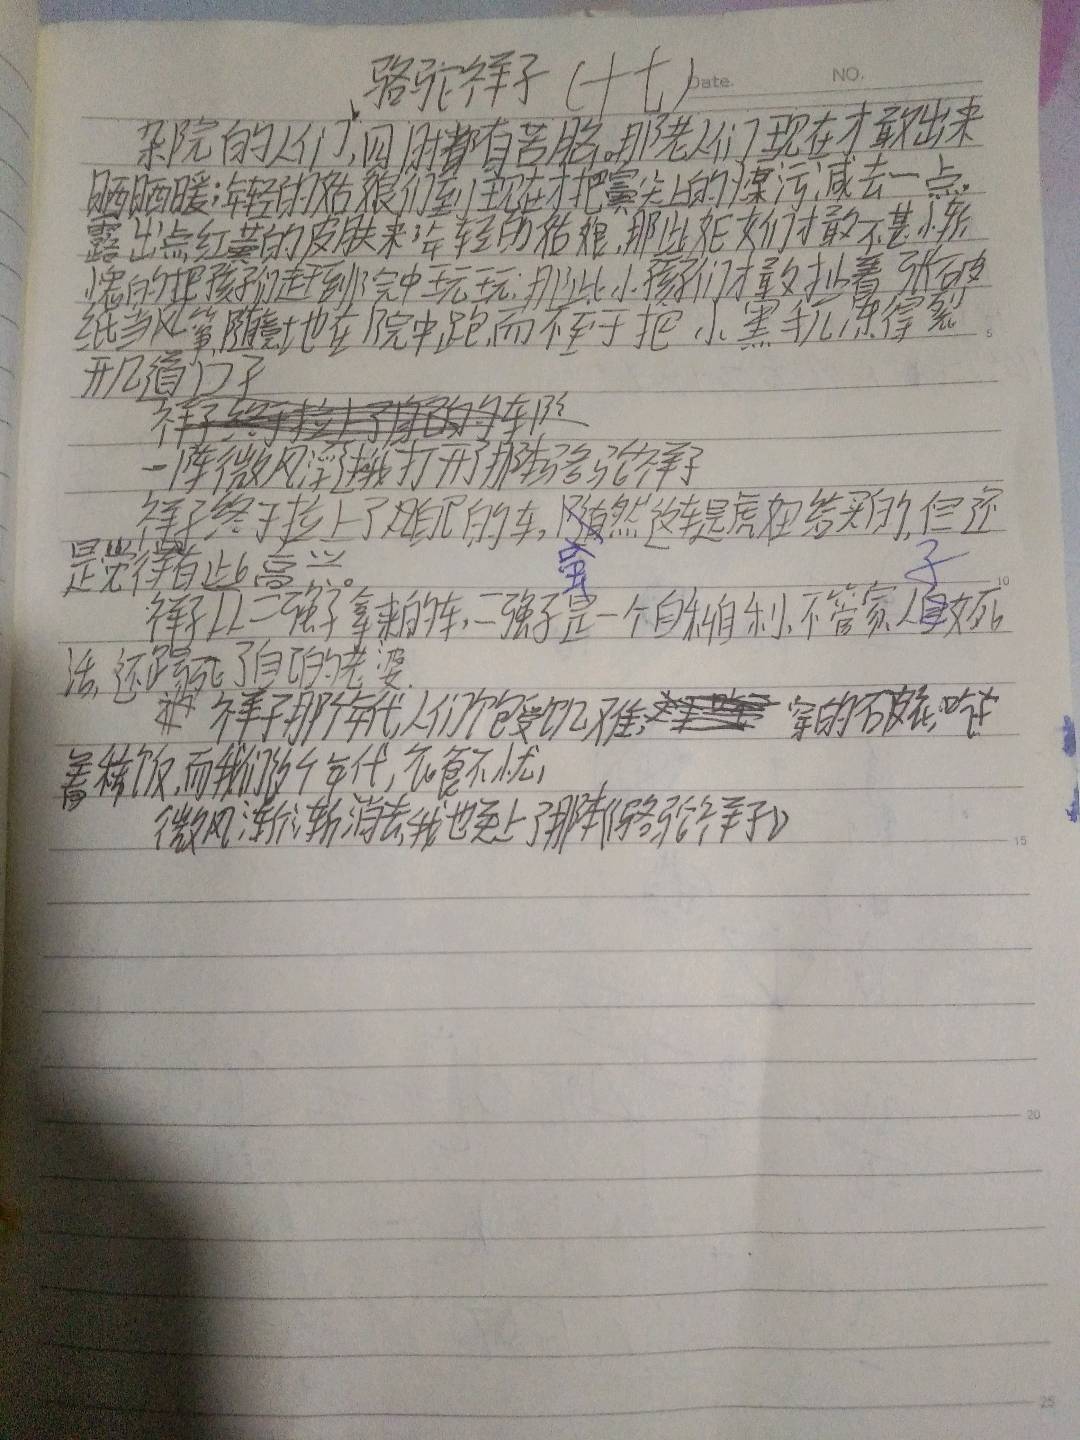 骆驼祥子(十七)
Date. NO.
杂院的人们,四时都有苦脑。那老人们现在才敢出来
晒晒暖;年轻的姑娘们到现在才把鼻尖上的煤污减去一点,
露出点红黄的皮肤来;年轻的姑娘,那些妇女们才敢不甚惭
愧的把孩子们赶到院中玩玩;那些小孩子们才敢扯着张破
纸当风筝,随意地在院中跑,而不至于把小黑手儿冻得裂
开几道口子
一阵微风浮过,我打开了那本骆驼祥子
祥子终于拉上了自己的车,虽然这车是虎妞给买的,但还
是觉得有些高兴。
祥子从二强子拿来的车,二强子是一个自私自利,不管家人子女死
活,还踢死了自己的老婆
祥子那个年代,人们饱受饥难,穿的 吃
着 饭,而我们这个年代,衣食不忧,
微风渐渐消去,我也关上了那本《骆驼祥子》
5
10
15
20
25